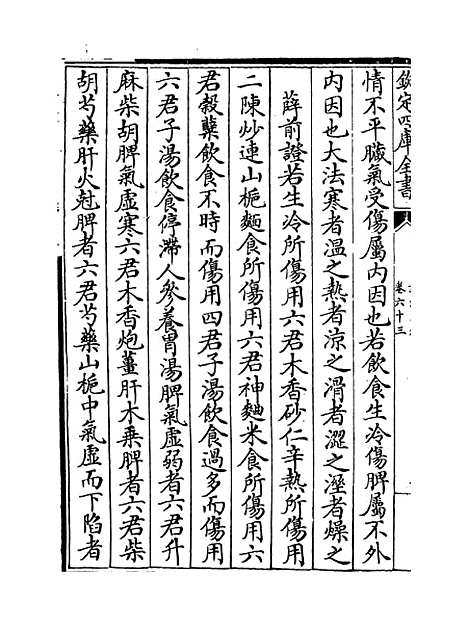 欽定四庫全書
卷六十三
情不平臟氣受傷屬内因也若飲食生冷傷脾屬不外
内因也大法寒者溫之熱者涼之滑者澀之溼者燥之
薛前證若生冷所傷用六君木香砂仁辛熱所傷用
二陳炒連山梔麵食所傷用六君神麯米食所傷用六
君穀蘖飲食不時而傷用四君子湯飲食過多而傷用
六君子湯飲食停滯人參養胃湯脾氣虛弱者六君升
麻柴胡脾氣虛寒六君木香炮薑肝木乗脾者六君柴
胡芍藥肝火尅脾者六君芍藥山梔中氣虛而下陷者